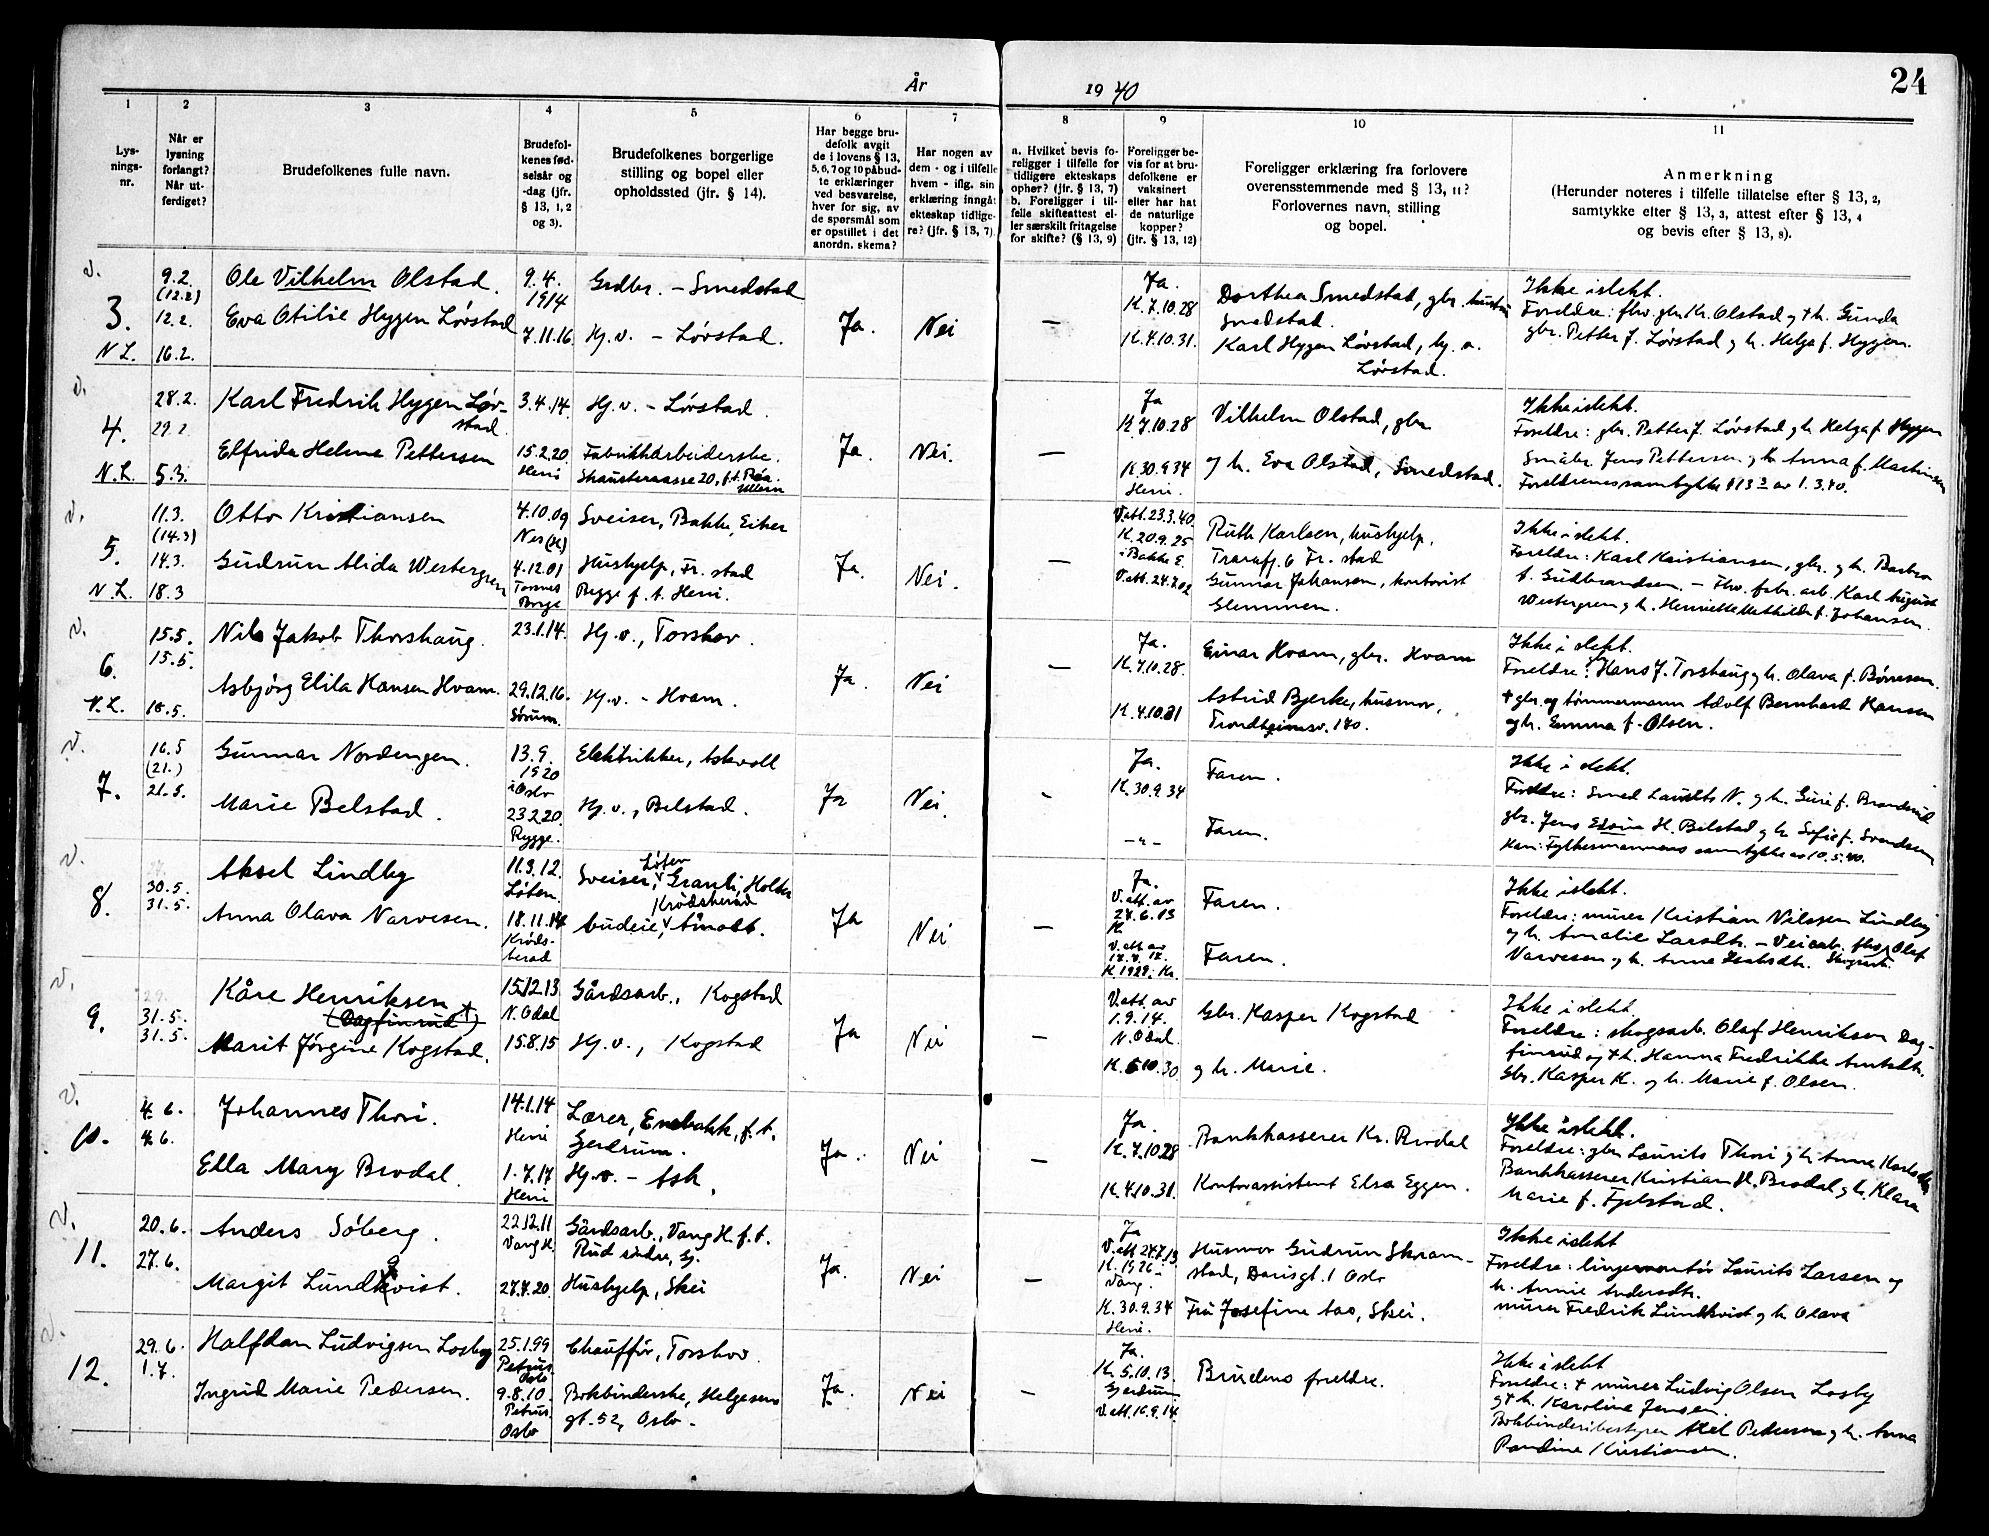 24
År 1940
1 2 3 4 5 6 7 8 9 10 11
Lysnings-nr.
Når er lysning forlangt? Når utferdiget?
Brudefolkenes fulle navn.
Brudefolkenes fødselsår og -dag (jfr. § 13, 1, 2 og 3).
Brudefolkenes borgerlige stilling og bopel eller opholdssted (jfr. § 14).
Har begge brudefolk avgit de i lovens § 13, 5, 6, 7 og 10 påbudte erklæringer ved besvarelse, hver for sig, av de spørsmål som er opstillet i det anordn. skema?
Har nogen av dem - og i tilfelle hvem - iflg. sin erklæring inngåt ekteskap tidligere? (jfr. § 13, 7)
a. Hvilket bevis foreligger i tilfelle for tidligere ekteskaps ophør? (jfr. § 13, 7) b. Foreligger i tilfelle skifteattest eller særskilt fritagelse for skifte? (§ 13, 9)
Foreligger bevis for at brudefolkene er vaksinert eller har hat de naturlige kopper? (jfr. § 13, 12)
Foreligger erklæring fra forlovere overensstemmende med § 13, 11? Forlovernes navn, stilling og bopel.
Anmerkning (Herunder noteres i tilfelle tillatelse efter § 13, 2, samtykke efter § 13, 3, attest efter § 13, 4 og bevis efter § 13, 8).
v. 3. N.L.
9.2. (12.2) 12.2. 16.2.
Ole Vilhelm Olstad.
Eva Otilie Hygen Lövstad
9.4. 1914
7.11.16
Grdbr. - Smedstad
Hj.v. - Lövstad.
Ja. Nei —
Ja. K.7.10.28
K.4.10.31.
Dorthea Smedstad, gbr. hustru
Smedstad.
Karl Hygen Lövstad, hj. v.
Lövstad.
Ikke i slekt.
Foreldre: fhv. gbr. Kr. Olstad og † h. Gunda
gbr. Petter J. Lövstad og h. Helga f. Hygen.
v. 4. N.L.
28.2. 29.2. 5.3.
Karl Fredrik Hygen Lövstad.
Elfrida Helene Pettersen
3.4.14.
15.2.20. Heni
Hj.v. - Lövstad.
Fabrikkarbeiderske.
20, f.t. Röa. Ullern
Ja. Nei. —
Ja K.7.10.28
K.30.9.34 Heni.
Vilhelm Olstad, gbr.
og h. Eva Olstad, Smedstad.
Ikke i slekt.
Foreldre: gbr. Petter J. Lövstad og h. Helga f. Hygen
Småbr. Jens Pettersen og h. Anna f. Martinsen
Foreldrenes samtykke § 13 3 av 1.3.40.
v. 5. N.L.
11.3. (14.3) 14.3. 18.3
Otto Kristiansen
Gudrun Alida Westergren
4.10.09 Nes (H)
4.12.01 Torsnes Borge
Sveiser, Bakke, Eiker
Hushjelp, Fr. stad
Rygge f. t. Heni.
Ja. Nei. —
V.att.23.3.40.
K.20.9.25 i Bakke E.
V.att.24.7.02
Ruth Karlsen, hushjelp,
6 Fr. stad
Gunnar Johansen, kontorist
Glemmen.
Ikke i slekt.
Foreldre: Karl Kristiansen, gbr. og h. Barbro
f. Gudbrandsen. - Fhv. fabr. arb. Karl August
Westergren og h. Henriette Mathilde f. Johansen.
v. 6. N.L.
15.5. 15.5. 18.5.
Nils Jakob Thorshaug.
Asbjörg Elila Hansen Hvam.
23.1.14.
29.12.16. Sörum.
Hj.v., Torshov.
Hj.v. - Hvam.
Ja. Nei —
Ja. K.7.10.28.
K.4.10.31
Einar Hvam, gbr. Hvam
Astrid Bjerke, husmor,
Trondheimsv. 140.
Ikke i slekt.
Foreldre: Hans J. Torshaug og h. Olava f. Börresen.
† gbr. og tömmermann Adolf Bernhard Hansen
og h. Emma f. Olsen.
v. 7.
16.5 (21.) 21.5.
Gunnar Nordengen.
Marie Belstad.
13.9. 1920 i Oslo
23.2.20. Rygge.
Elektrikker, Askvoll
Hj.v., Belstad.
Ja Nei. -
Ja. K.30.9.34
-"-
Faren.
Faren.
Ikke i slekt.
Foreldre: Smed Laurits N. og h. Guri f. Branderud
gbr. Jens Edvin H. Belstad og h. Sofie f. Svendsen
Ham: Fylkesmannens samtykke av 10.5.40.
v. 8.
30.5. 31.5.
Aksel Lindby
Anna Olava Narvesen.
11.3.12. Löten.
18.11.14 Krödsherad
Sveiser, Löten Granli, Holter
Budeie, Krödsherad Åmodt.
Ja Nei —
Ja. V.att.av 24.6.13 K
V.att av K.1929. Kr.
Faren.
Faren.
Ikke i slekt.
Foreldre: murer Kristian Nilssen Lindby
og h. Amalie Larsdtr. - Veiarb. fhv. Olaf
Narvesen og h. Anne
v. 9.
31.5. 31.5.
Kåre Henriksen
(Dagfinrud †)
Marit Jörgine Kogstad.
15.12.13 N. Odal
15.8.15
Gårdsarb., Kogstad
Hj.v., Kogstad
Ja Nei —
V.att. av 1.9.14. N.Odal.
K.5.10.30
Gbr. Kasper Kogstad
og h. Marie.
Ikke i slekt.
Foreldre: skogsarb. Olaf Henriksen Dagfinrud
og † h. Hanna Fredrikke Amtsdtr.
Gbr. Kasper K. og h. Marie f. Olsen.
v. 10.
4.6. 4.6.
Johannes Thori.
Ella Mary Brodal.
14.1.14 Heni
1.7.17 Heni
Lærer, Enebakk, f.t.
Gjerdrum.
Hj.v. - Ask.
Ja. Nei —
Ja. K.7.10.28
K.4.10.31.
Bankkasserer Kr. Brodal
Kontorassistent Elsa Eggen.
Ikke i slekt.
Foreldre: gbr. Laurits Thori og h. Anna Karlsdtr.
Bankkasserer Kristian H. Brodal og h. Klara
Marie f. Fjelstad.
v. 11.
20.6. 27.6.
Anders Söberg.
Margit Lundkvist.
22.12.11 Vang H.
27.4.20.
Gårdsarb., Vang H. f.t.
Rud söndre, Gj.
Hushjelp, Skei
Ja. Nei —
Ja V.att.24.7.13
K.1926 - Vang. -
K.30.9.34 Heni.
Husmor Gudrun Skramstad,
Darisgt. 1 Oslo
Fru Josefine Aas, Skei.
Ikke i slekt
Foreldre: linjemontör Laurits Larsen og
h. Annie Andersdtr.
murer Fredrik Lundkvist og h. Olava
v. 12.
29.6. 1.7.
Halfdan Ludvigsen Losby
Ingrid Marie Pedersen.
25.1.99 Petrus Oslo
9.8.10. Petrus. Oslo
Chauffør, Torshov.
Bokbinderske, Helgesens
gt. 52, Oslo.
Ja. Nei —
Ja. K.5.10.13. Gjerdrum
V.att.16.9.14.
Brudens foreldre.
Ikke i slekt
Foreldre: † murer Ludvig Olsen Losby
og † h. Karoline Jensen.
Bokbinderibestyrer Axel Pedersen og h. Anna
Randine Kristiansen.